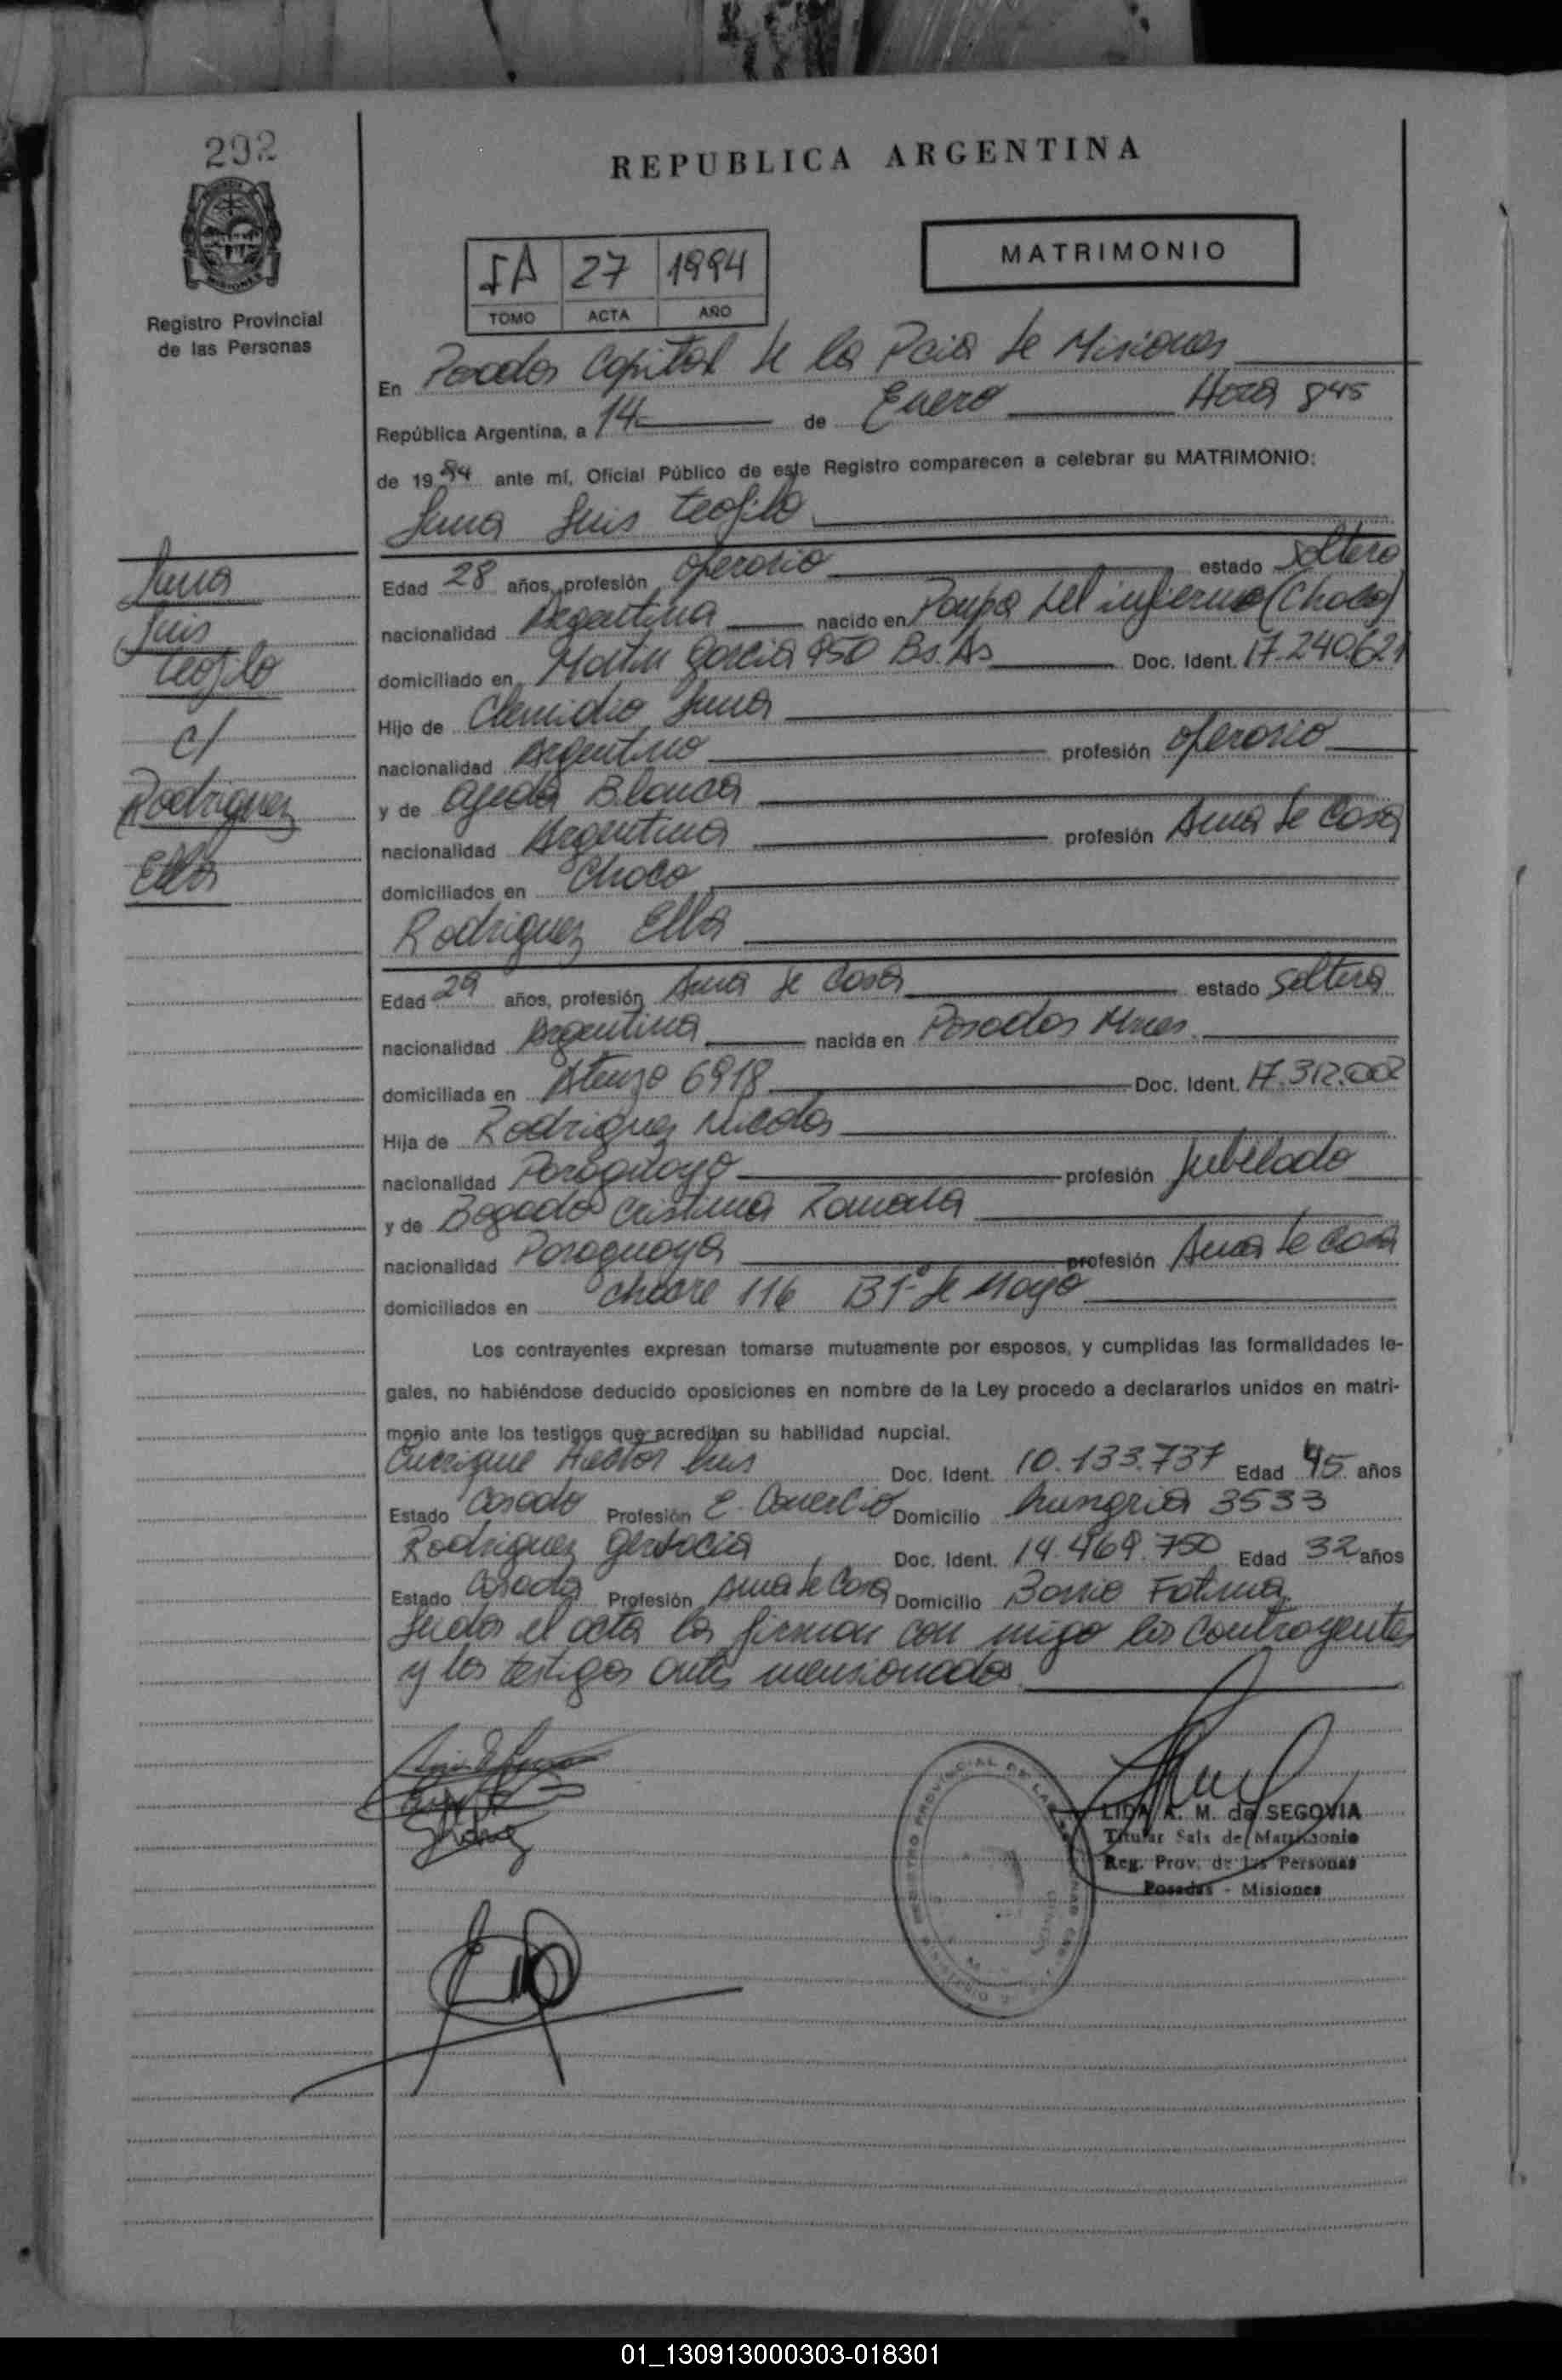 292
REPUBLICA ARGENTINA
MATRIMONIO
IA 27 1994
TOMO ACTA AÑO
Registro Provincial
de las Personas
En Posadas Capital de la Pcia de Misiones
República Argentina, a 14 de Enero Hora 845
de 1994 ante mí, Oficial Público de este Registro comparecen a celebrar su MATRIMONIO:
Luna Luis Teofilo
Edad 28 años, profesión operario estado soltero
nacionalidad Argentina nacido en Pampa del infierno (Chaco)
domiciliado en Martin Garcia 950 Bs. As Doc. Ident. 17.240621
Hijo de Clemidio Luna
nacionalidad Argentino profesión operario
y de Ojeda Blanca
nacionalidad Argentina profesión Ama de Casa
domiciliados en Chaco
Rodriguez Ella
Edad 29 años, profesión Ama de Casa estado Soltera
nacionalidad Argentina nacida en Posadas Mnes
domiciliada en 6918 Doc. Ident. 17.312.002
Hija de Rodriguez Nicolas
nacionalidad Paraguayo profesión Jubilado
y de Bogado Cristina Romana
nacionalidad Paraguaya profesión Ama de Casa
domiciliados en 116 B 1º de Mayo
Los contrayentes expresan tomarse mutuamente por esposos, y cumplidas las formalidades le-
gales, no habiéndose deducido oposiciones en nombre de la Ley procedo a declararlos unidos en matri-
monio ante los testigos que acreditan su habilidad nupcial.
Enrrique Hector Luis Doc. Ident. 10.133.737 Edad 45 años
Estado Casado Profesión E. Comercio Domicilio hungria 3533
Rodriguez Doc. Ident. 14.469.750 Edad 32 años
Estado Casada Profesión Ama de Casa Domicilio Barrio Fatima
Leida el acta la firman con migo los contrayentes
y los testigos antes mensionados
Luna
Luis
Teofilo
c/
Rodriguez
Ella
LIDA A. M. de SEGOVIA
Titular Sala de Matrimonio
Reg. Prov. de las Personas
Posadas - Misiones
01_130913000303-018301